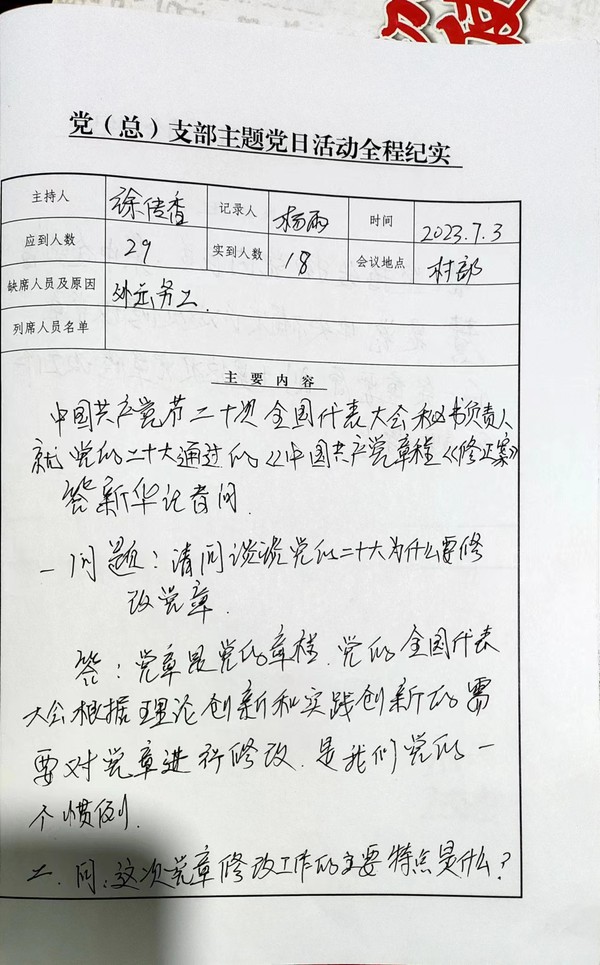 党（总）支部主题党日活动全程纪实
主持人 徐传香 记录人 杨雨 时间 2023.7.3
应到人数 29 实到人数 18 会议地点 村部
缺席人员及原因 外出务工.
列席人员名单
主要内容
中国共产党节二十次全国代表大会秘书负责人
就党的二十大通过的《中国共产党章程《修正案》
答新华记者问.
一问题：请问谈谈党的二十大为什么要修
改党章.
答：党章是党的章程.党的全国代表
大会根据理论创新和实践创新的需
要对党章进行修改.是我们党的一
个惯例.
二.问:这次党章修改工作的主要特点是什么?